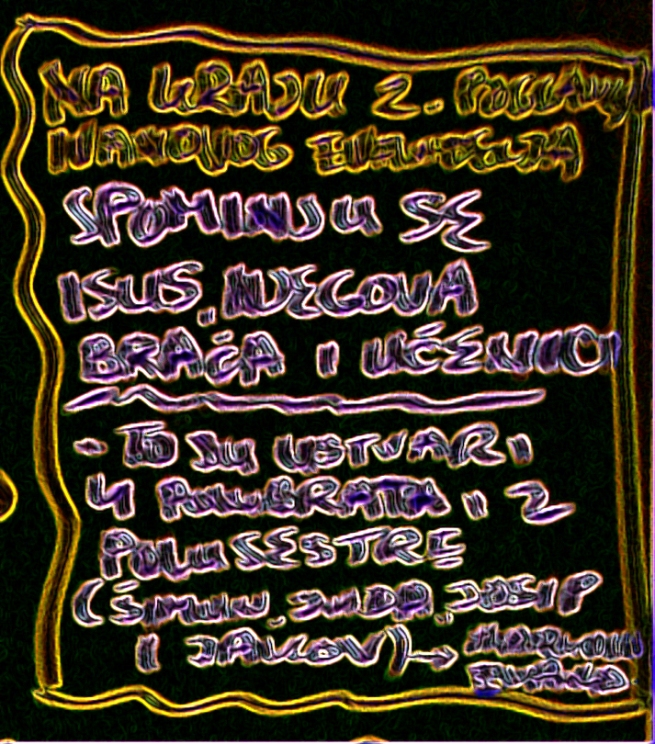 NA KRAJU 2. POGLAVLJ
IVANOVOG EVANĐELJA
SPOMINJU SE
ISUS, NJEGOVA
BRAĆA I UČENICI
- TO SU USTVARI
4 POLUBRATA I 2
POLUSESTRE
(ŠIMUN, JUDA, JOSIP
I JAKOV) →